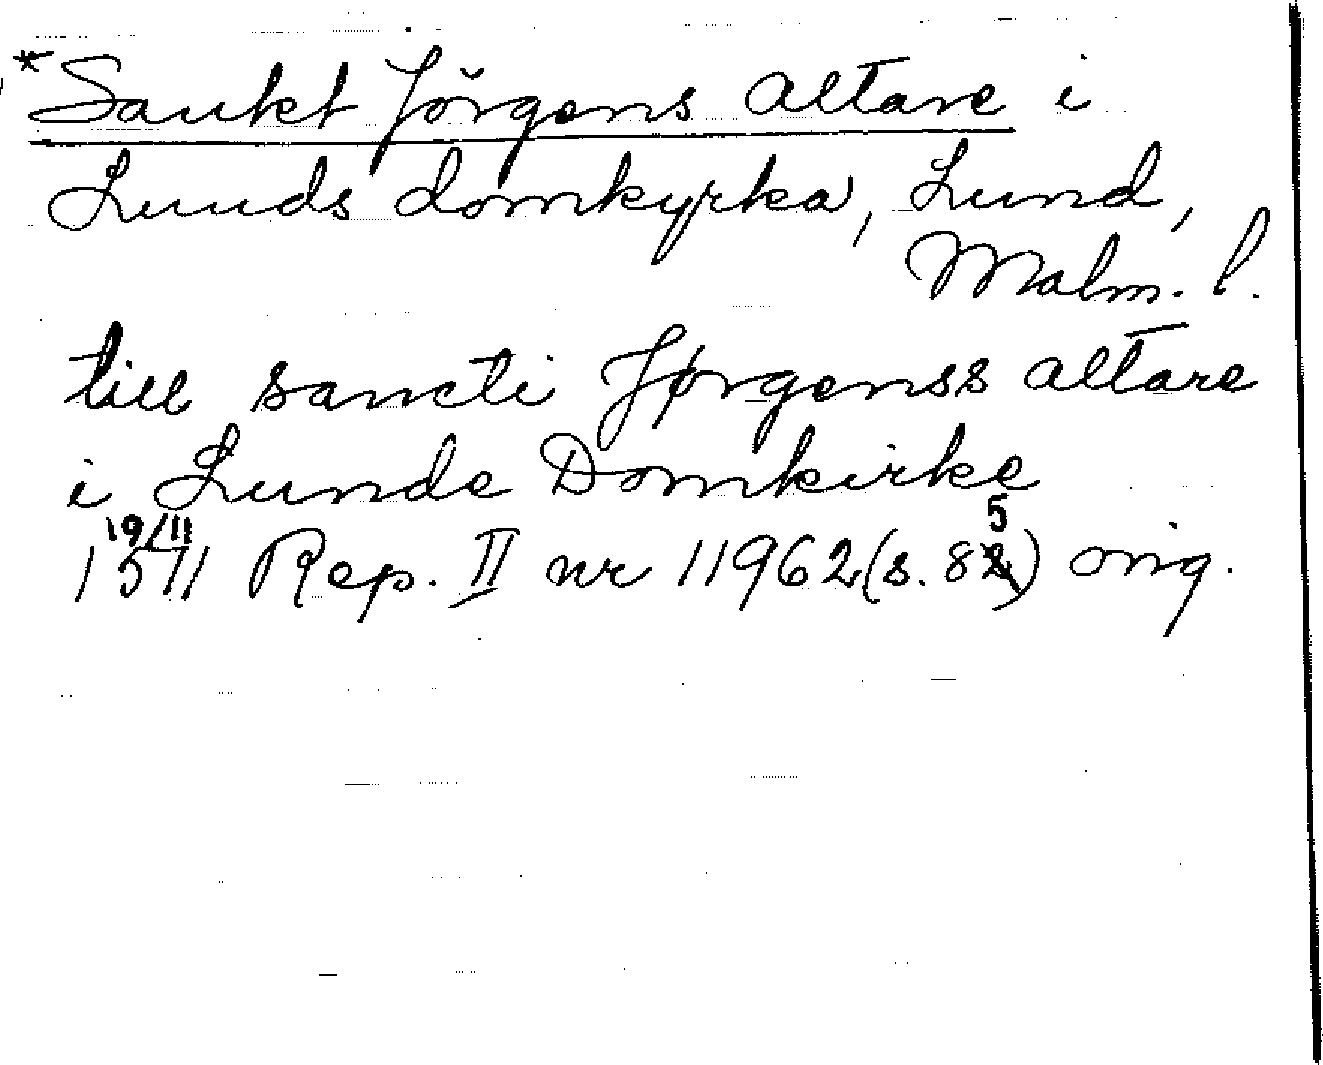 *Sankt Jörgens altare i
Lunds domkyrka, Lund,
Malm. l.
till sancti Jørgenss altare
i Lunde Domkirke
19/11 5
1511 Rep. II nr 11962 (s. 82) orig.